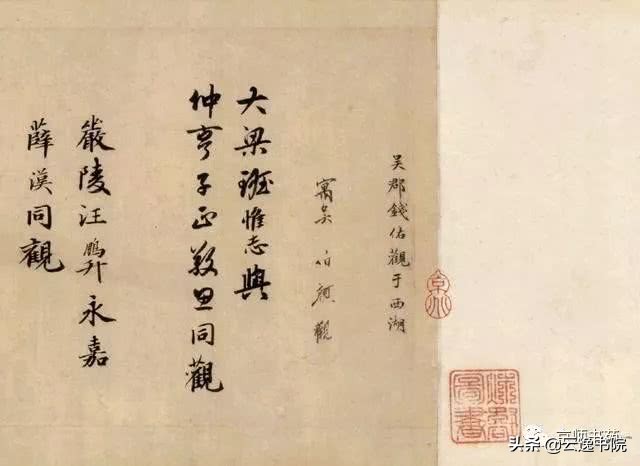 吴郡錢佑觀于西湖
寓吴 伯顔觀
大梁班惟志與
仲亨子正敬思同觀
嚴陵汪鵬升永嘉
薛漢同觀
头条@云逸书院